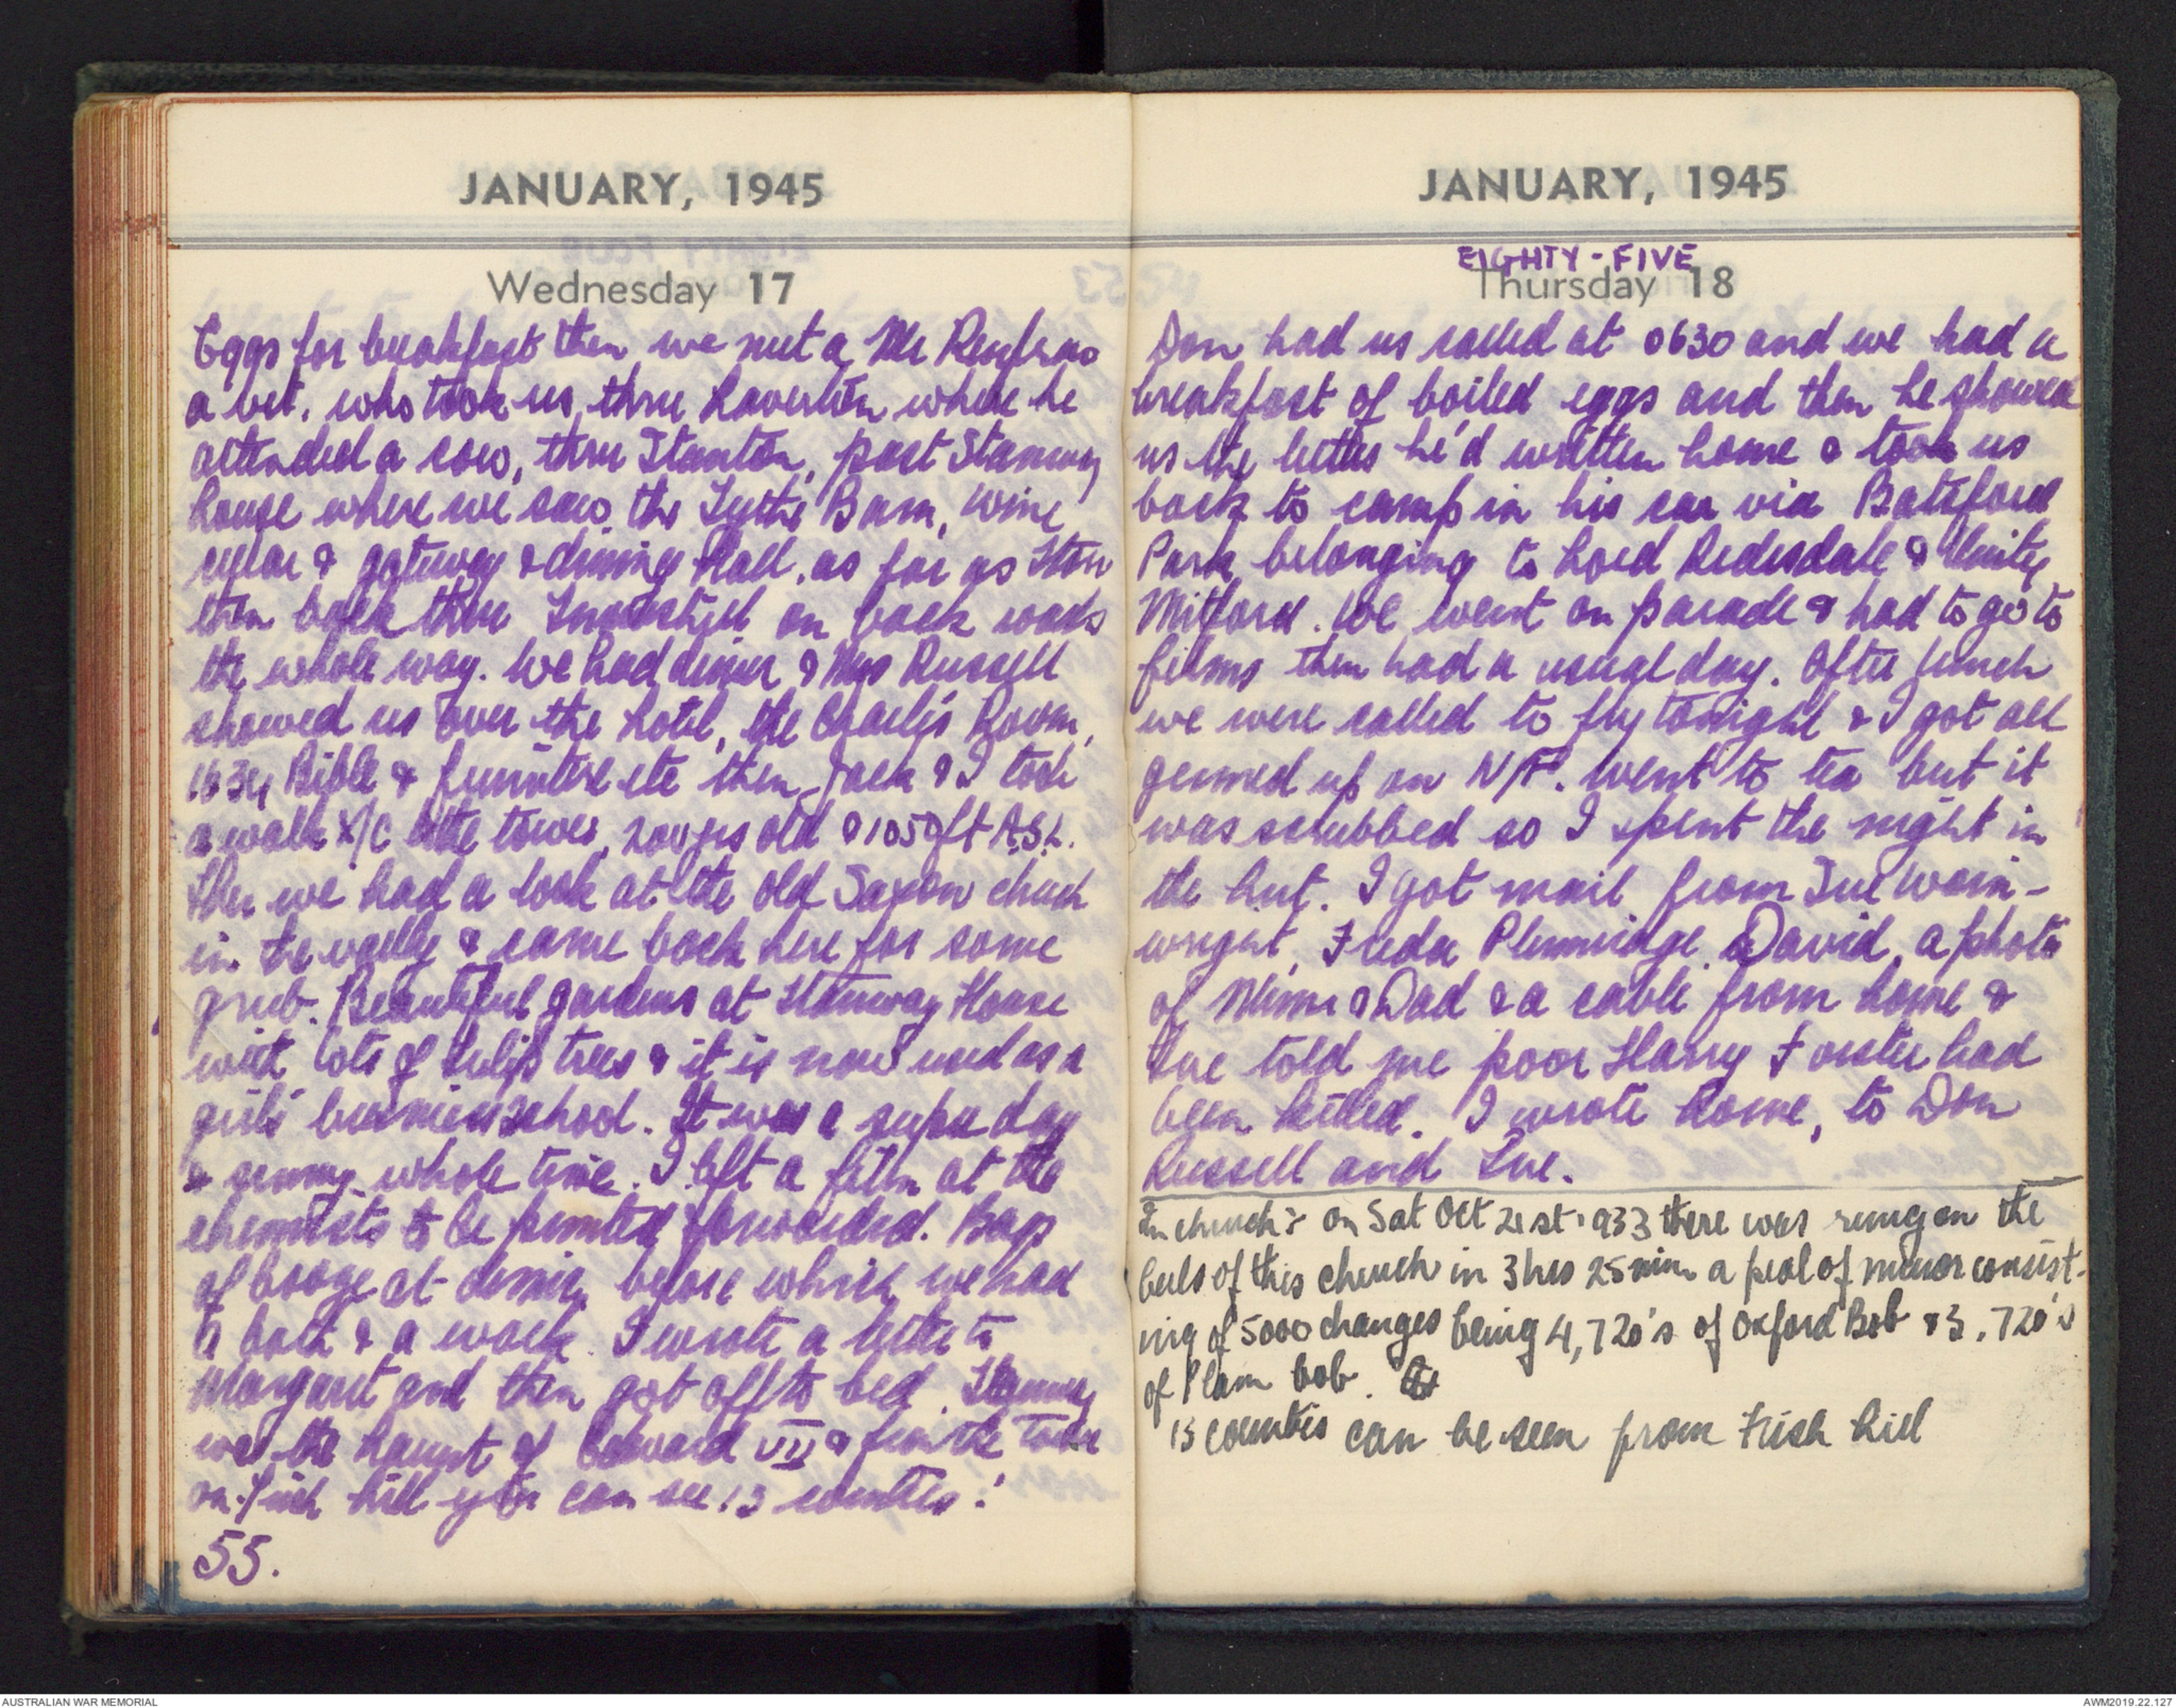 JANUARY, 1945
Wednesday 17
Eggs for breakfast then we met a Mr
a vet. who took us thru Laverton where he
attended a cow, thru Stanton, past Stanway
house where we saw the Tythe Barn, wine
cellar & gateway & dining Hall, as far as Stow
then back thru on back roads
the whole way. We had dinner & Mrs Russell
showed us over the hotel, the Charles Room,
1634 Bible & furniture etc then Jack & I took
a walk X/C to the tower, 200 yrs old & 1050 ft A.S.L.
Then we had a look at the old Saxon church
in the valley & came back here for some
grub. Beautiful gardens at Stanway House
with lots of tulip trees & it is now used as a
girls' business school. It was a super day
& sunny whole time. I left a film at the
chemists to be printed & forwarded. Bags
of booze at dinner before which we had
a bath & a walk. I wrote a letter to
Margaret and then got off to bed. Stanway
was the haunt of Edward VII & from the tower
on Fish hill you can see 13 counties!
55.
JANUARY, 1945
EIGHTY-FIVE
Thursday 18
Don had us called at 0630 and we had a
breakfast of boiled eggs and then he showed
us the letters he'd written home & took us
back to camp in his car via Batsford
Park belonging to Lord Redesdale & Unity
Mitford. We went on parade & had to go to
films then had a usual day. After lunch
we were called to fly tonight & I got all
genned up on N/F. Went to tea but it
was scrubbed so I spent the night in
the hut. I got mail from Sue Wain-
wright, Freda Plumridge, David, a photo
of Mum & Dad & a cable from home &
Sue told me poor Harry Forster had
been killed. I wrote home, to Don
Russell and Sue.
In church:- on Sat Oct 21st 1933 there was rung on the
bells of this church in 3hrs 25 min a peal of minor consist-
ing of 5000 changes being 4,720's of Oxford Bob & 3.720's
of Plain bob.
13 counties can be seen from Fish hill
AUSTRALIAN WAR MEMORIAL
AWM2019.22.127